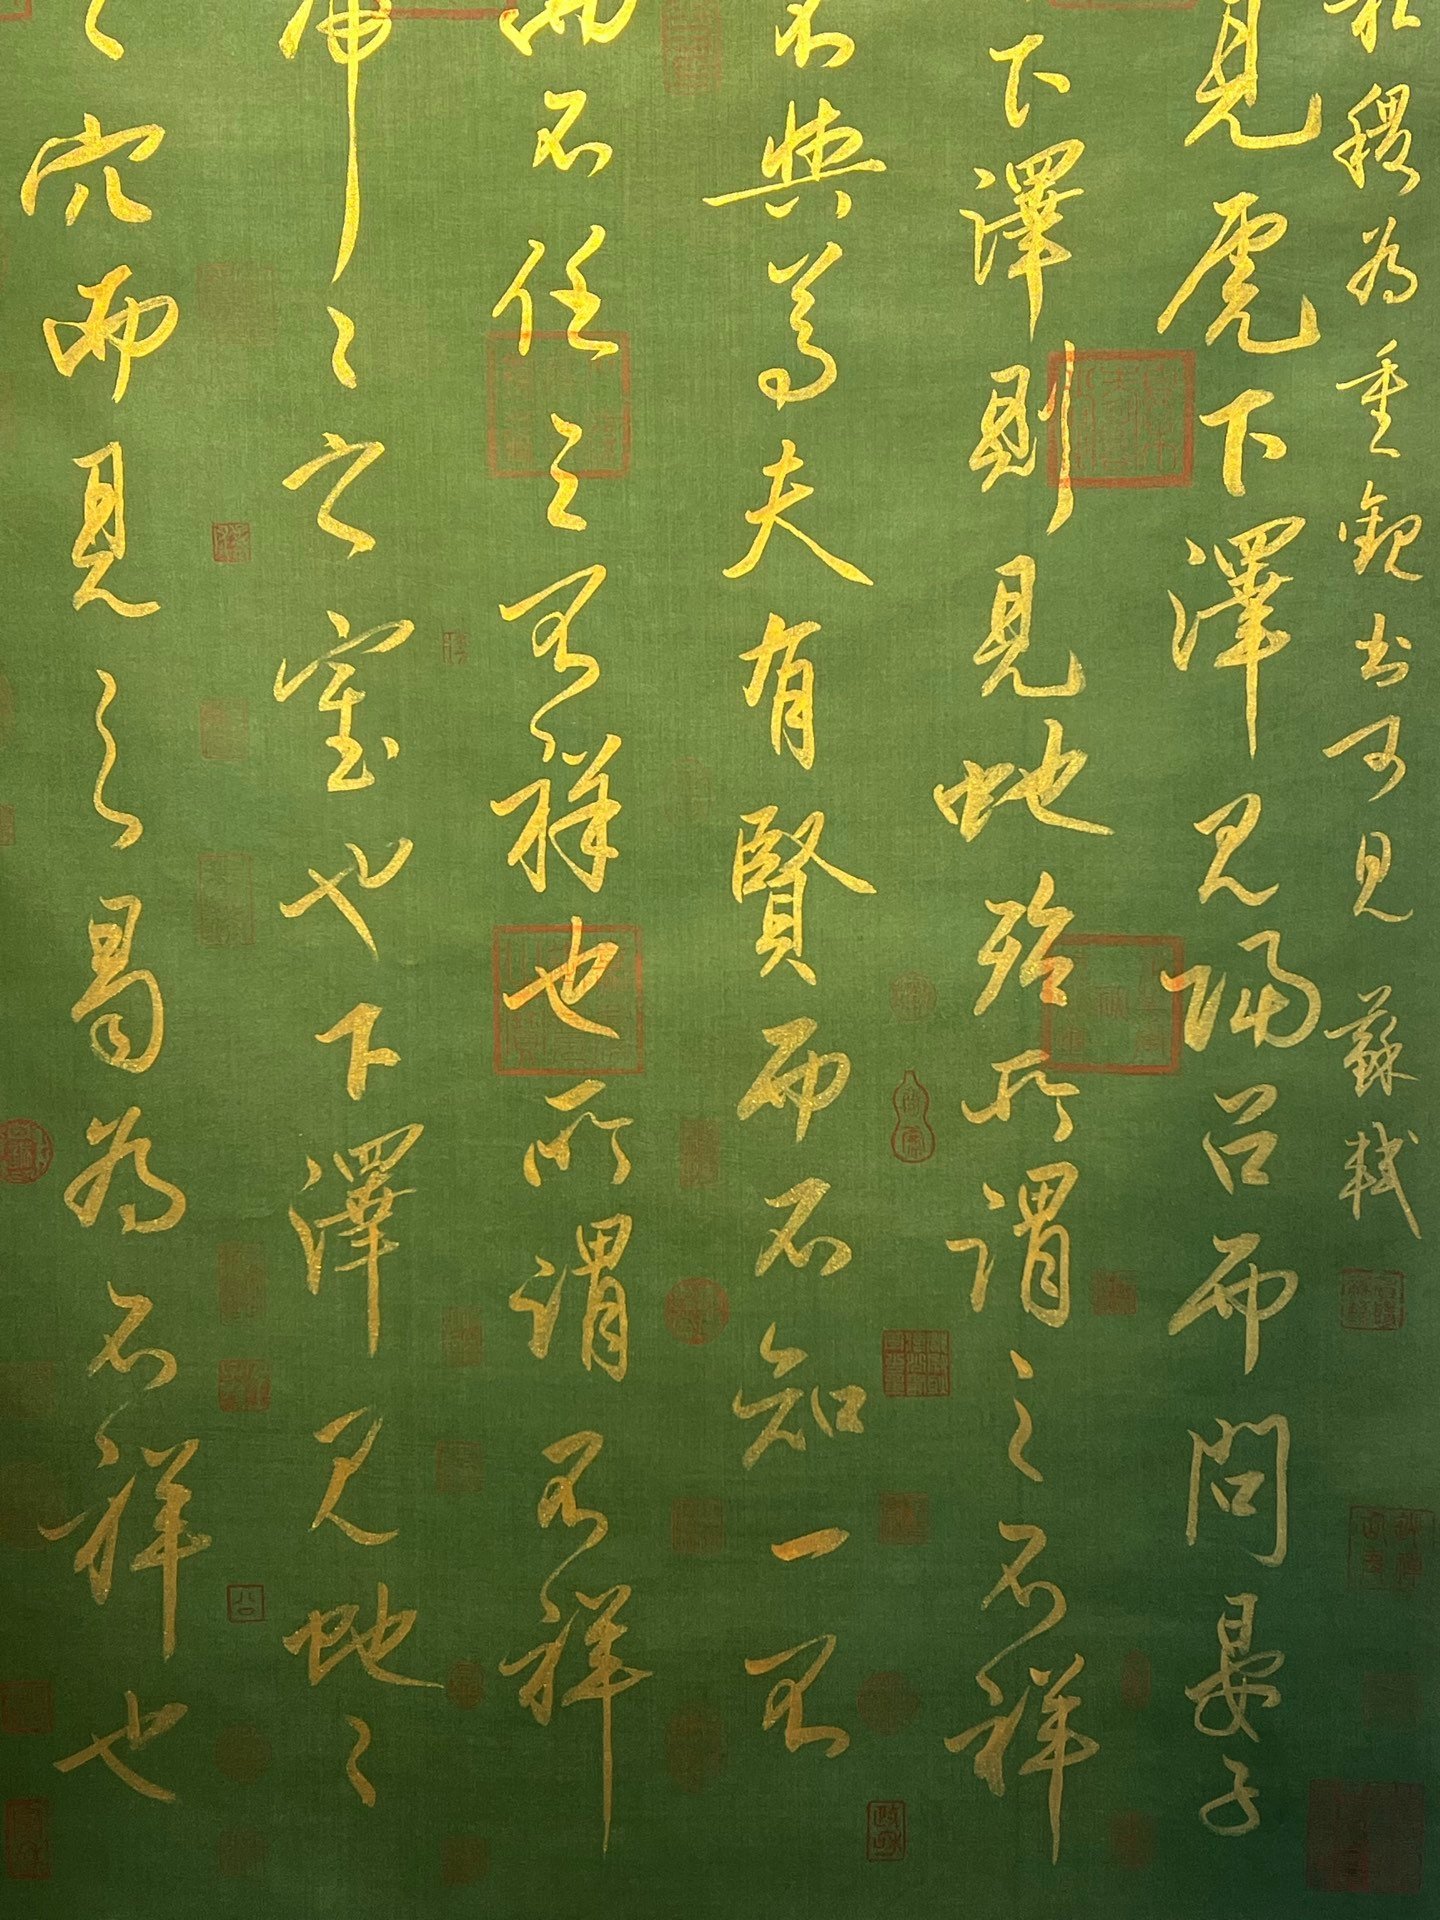 稷為重觀可見 蘇軾
見虎下澤見歸召而問晏子
下澤則見蛇殆所謂之不祥
不與焉夫有賢而不知一不
而不任三不祥也所謂不祥
虎々之室也下澤見蛇々
之穴而見之曷為不祥也